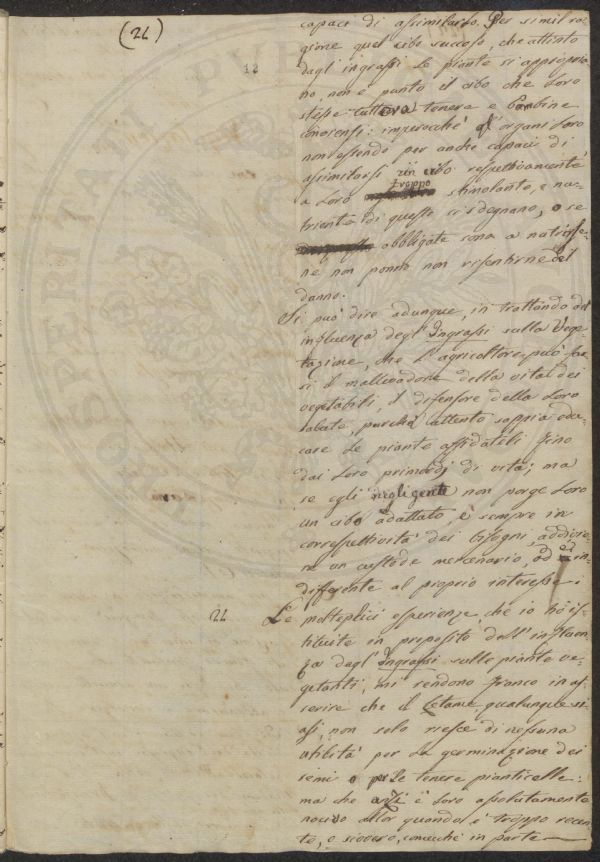 (22)
12
capaci di assimilarlo. Per simil ra-
gione quel cibo succoso, che attinto
dagl' ingrassi le piante si appropria-
no, non è punto il cibo che loro
stesse tuttora tenere e bambine
conviensi: imperocchè gl' organi loro
non essendo per anche capaci di
assimilarsi un cibo respettivamente
a loro troppo stimolante, e nu-
triente di questo si sdegnano, o se
obbligate sono a nutrirse-
ne non ponno non risentirne del
danno.
Si può dire adunque, in trattando del
influenza degl' Ingrassi sulla Vege-
tazione, che l'agricoltore può far
si il mallevadore della vita dei
vegetabili, il difensore della loro
salute, purchè attento sappia edu-
care le piante affidateli fino
dai loro primordj di vita; ma
se egli negligente non porge loro
un cibo adattato, e sempre in
correspettività dei bisogni, addivie-
ne un custode mercenario, ed in-
differente al proprio interesse:
22 Le molteplici esperienze, che io hò is-
tituite in proposito dell' influen-
za degl' Ingrassi sulle piante ve-
getanti, mi rendono franco in as-
serire che il Letame qualunque si-
asi, non solo riesce di nessuna
utilità per la germinazione dei
semi o per le tenere pianticelle:
ma che anzi è loro assolutamente
nocivo allor quando è troppo recen-
te, o sivvero, comecchè in parte